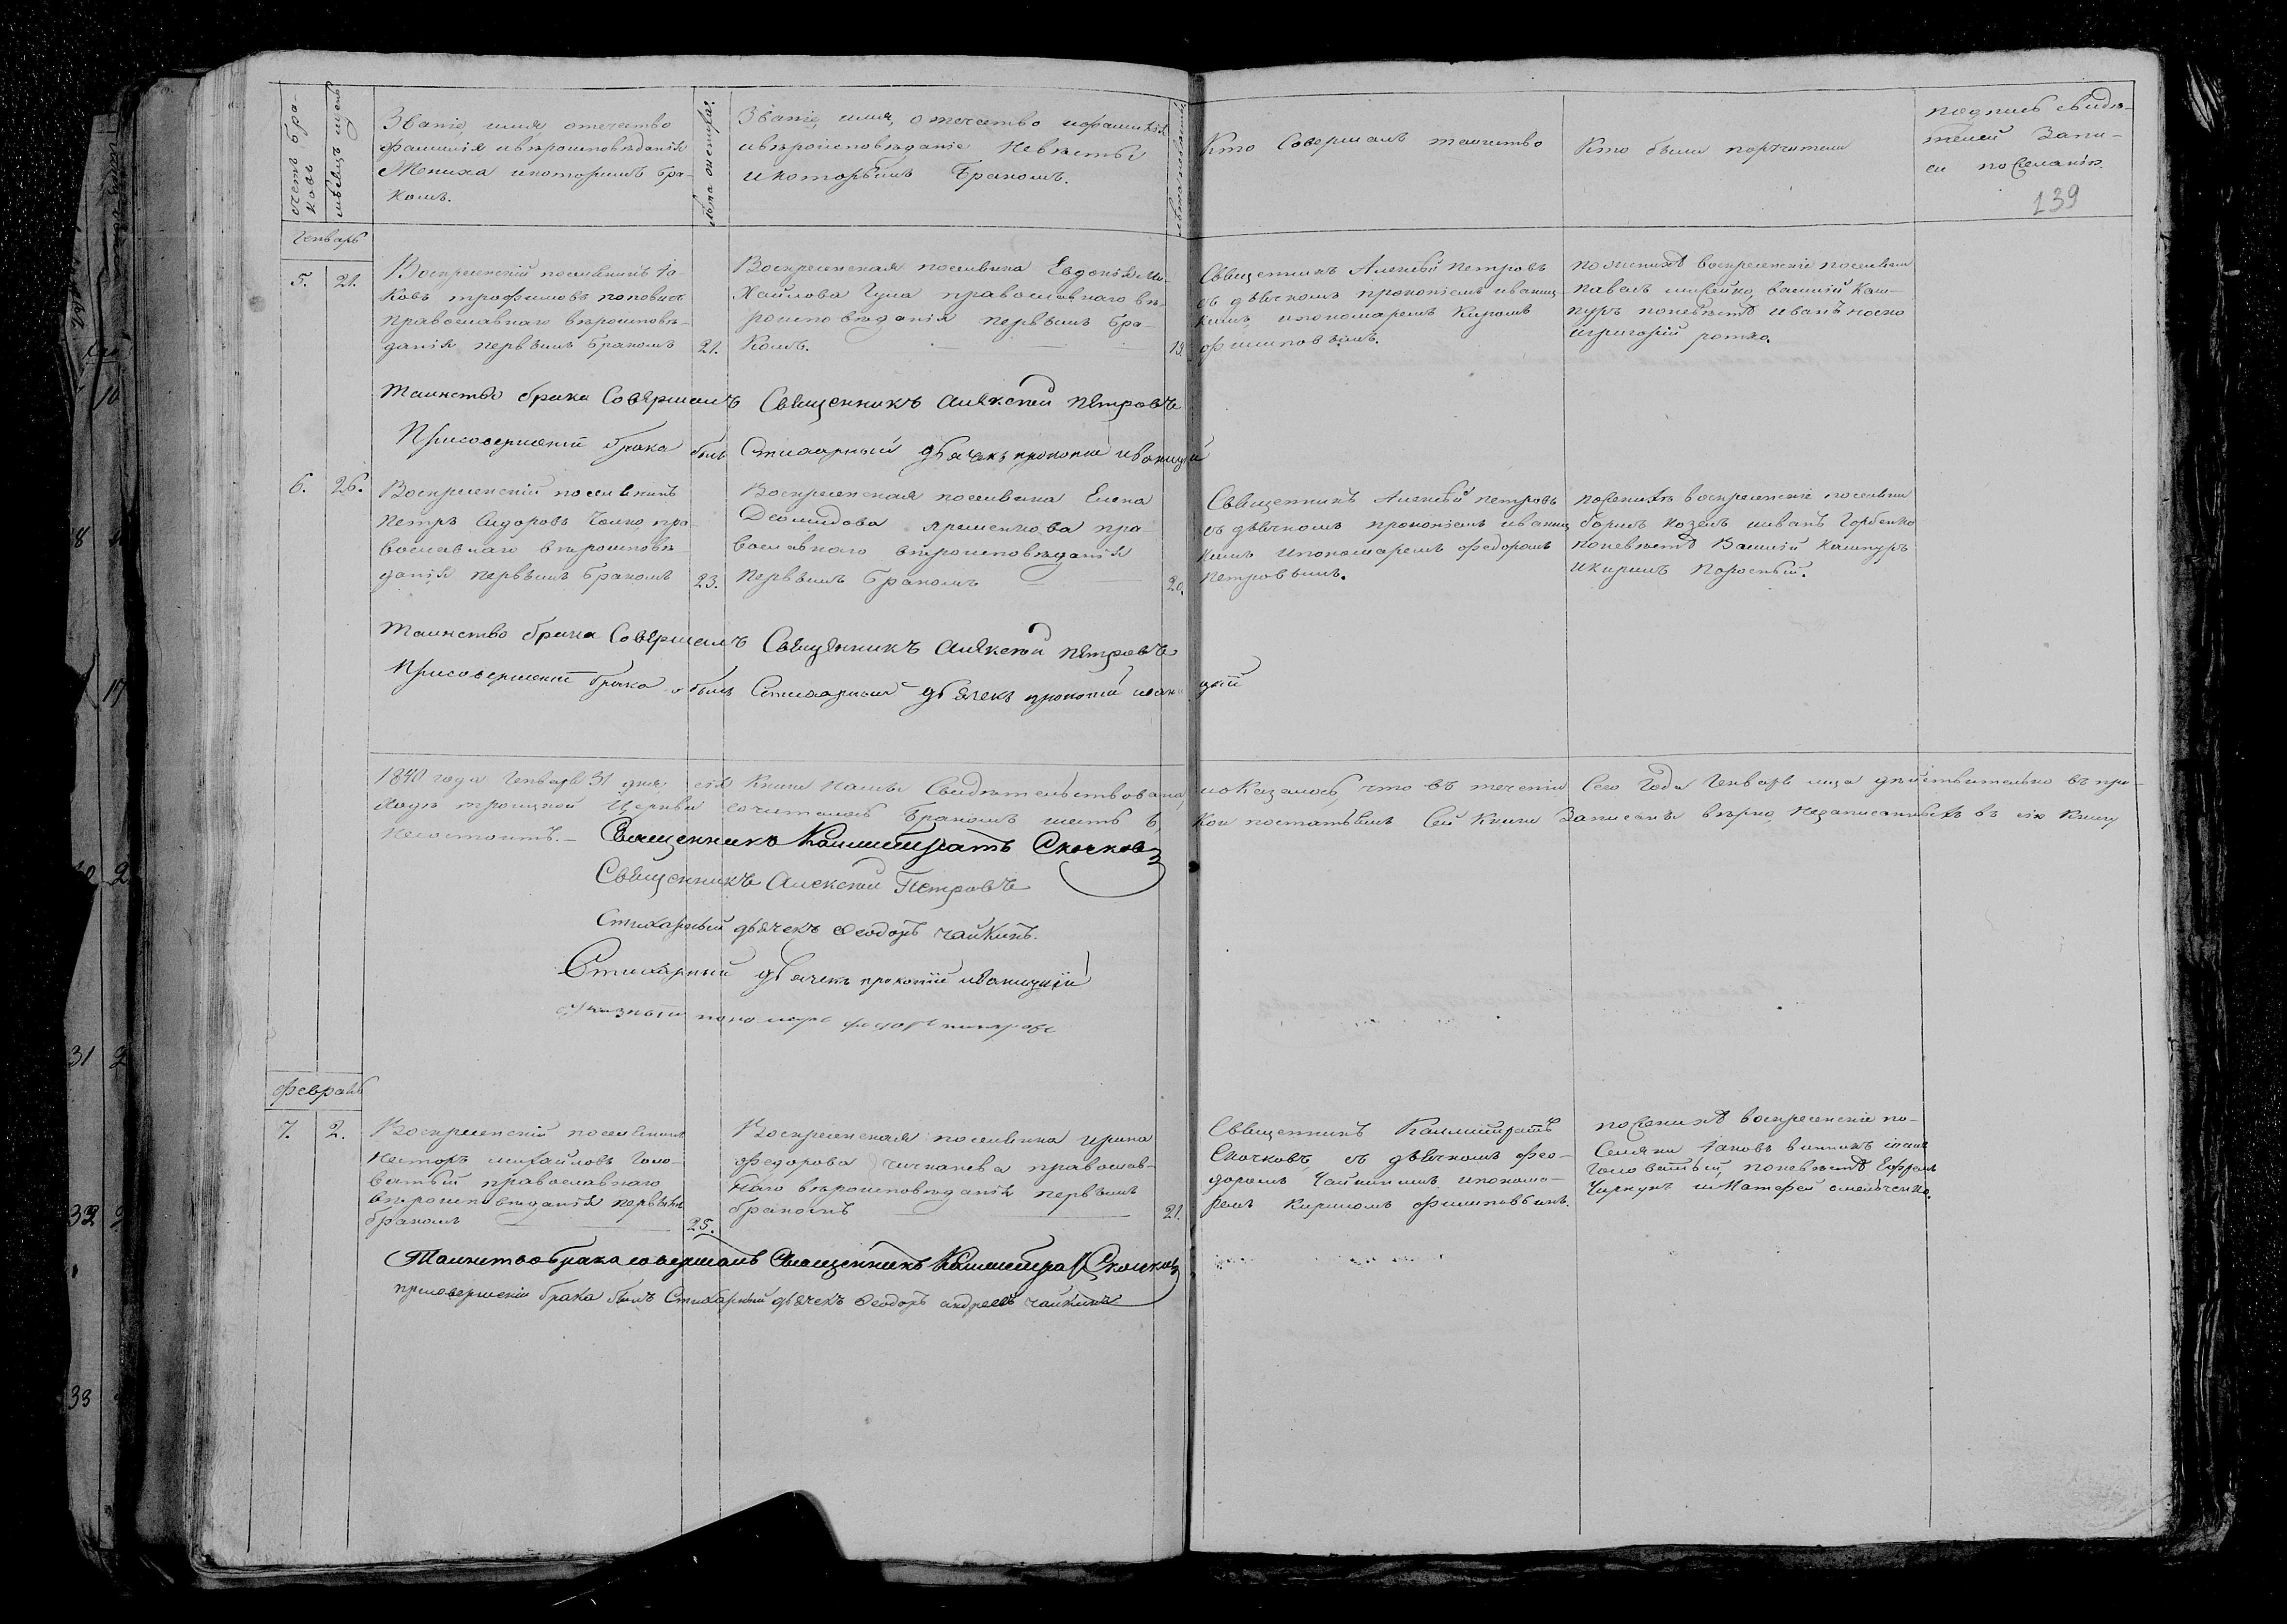 счетъ бра-
ковъ
мѣсяцъ и день
Званіе, имя, отечество
фамилія и вѣроисповѣданія
Жениха и которымъ бра-
комъ.
лѣта жениха.
Званіе, имя, отечество и фамилія
и вѣроисповѣданіе Невѣсты
и которымъ Бракомъ.
лѣта невѣсты
Кто Совершалъ таинство
Кто были поручители
подпись свидѣ-
телей Запи-
си по желанію.
139
Генварь
5.
21.
Воскресенскій поселянинъ Іа-
ковъ трофимовъ поповичь
православнаго вѣроисповѣ-
данія первымъ бракомъ
21.
Воскресенская поселянка Евдокія Ми-
хайлова Гула православнаго вѣ-
роисповѣданія первымъ бра-
Комъ.
19
Священникъ Алексѣй петровъ
съ дьячкомъ прокопіемъ иваниц-
кимъ и пономаремъ Кириломъ
филиповымъ.
по женихѣ воскресенскіе поселяни
павелъ Василій Каш-
пуръ по невѣстѣ иванъ носко
и григорій
Таинство брака Совершалъ Священникъ Алексѣй Пѣтровъ
При совершеніи брака былъ Стихарный дьячекъ прокопій иваницкій
6.
26.
Воскресенскій поселянинъ
петръ Сидоровъ пра-
вославнаго вѣроисповѣ-
данія первымъ бракомъ
23.
Воскресенская поселянка Елена
Деомидова Яременкова пра-
вославнаго вѣроисповѣданія
первымъ бракомъ
20.
Священникъ Алексѣй петровъ
съ дьячкомъ прокопіемъ иваниц
кимъ и пономаремъ федоромъ
петровымъ.
по женихѣ воскресенскіе поселяни
борисъ козелъ и иванъ Горбенко
по невѣстѣ Василій Кашпуръ
и кирилъ Поросный.
Таинство брака Совершалъ Священникъ Алексѣй пѣтровъ
При совершеніи брака былъ Стихарный дьячекъ прокопій иваницкій
1840 года Генваря 31 дня, сія Книга нами Свидѣтельствована, и оказалось, что въ теченіи Сего Года Генваря мѣсца дѣйствительно въ при-
ходѣ троицкой Церкви сочиталось Бракомъ шесть 6, Кои по статьямъ Сей Книги Записаны вѣрно, Незаписанныхъ въ сію Книгу
несостоитъ.
Священникъ Каллистратъ Скочковъ
Священникъ Алексѣй Петровъ
Стихарный дьячекъ Феодоръ чайкинъ.
Стихарный дьячекъ прокопій иваницкій
Указный пономарь федоръ петровъ
февраль
7.
2.
Воскресенскій поселянинъ
Несторъ михайловъ Голо-
ватый православнаго
вѣроисповѣданія первымъ
бракомъ
25.
Воскресенская поселянка ирина
федорова православ-
наго вѣроисповѣданія первымъ
бракомъ
21.
Священникъ Каллистратъ
Скочковъ, съ дьячкомъ Фео-
доромъ Чайкинымъ и понома-
ремъ Кириломъ филиповымъ.
по женихѣ воскресенскіе по-
Селяни Іаковъ іоанъ
Головатый, по невѣстѣ Ефремъ
Чиркунъ и Матфей омельченко.
Таинство брака совершалъ Священникъ Каллистратъ Скочковъ
при совершеніи брака былъ Стихарный дьячекъ Феодоръ андреевъ чайкинъ